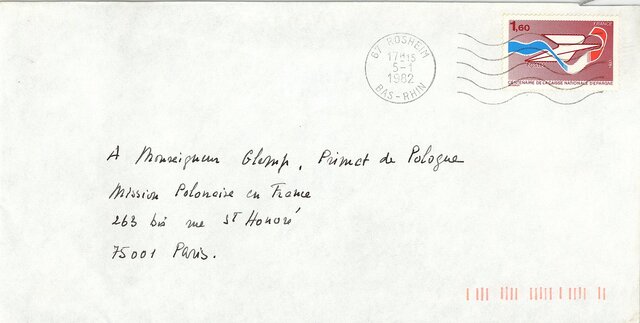 67 ROSHEIM
17H15
5-1
1982
BAS-RHIN
1,60
FRANCE
POSTES
CENTENAIRE DE LA CAISSE NATIONALE D'EPARGNE
A Monseigneur Glemp, Primat de Pologne
Mission Polonaise en France
263 bis rue St Honoré
75001 Paris.